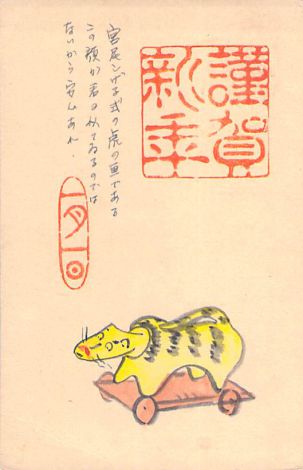 謹賀
新年
宮尾シゲヲ式の虎の画である
この顔が君に似てゐるのでは
ないから安心あれ.
一月一日